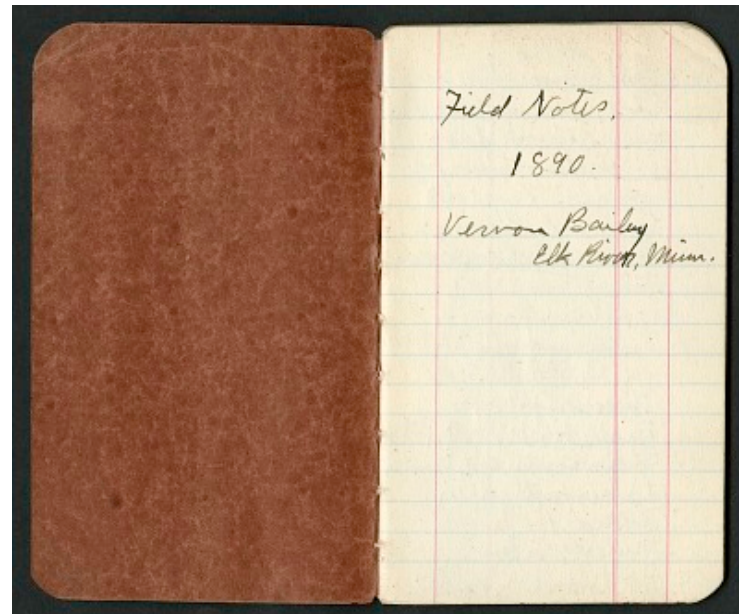 Field Notes.
1890.
Vernon Bailey
Elk River, Minn.